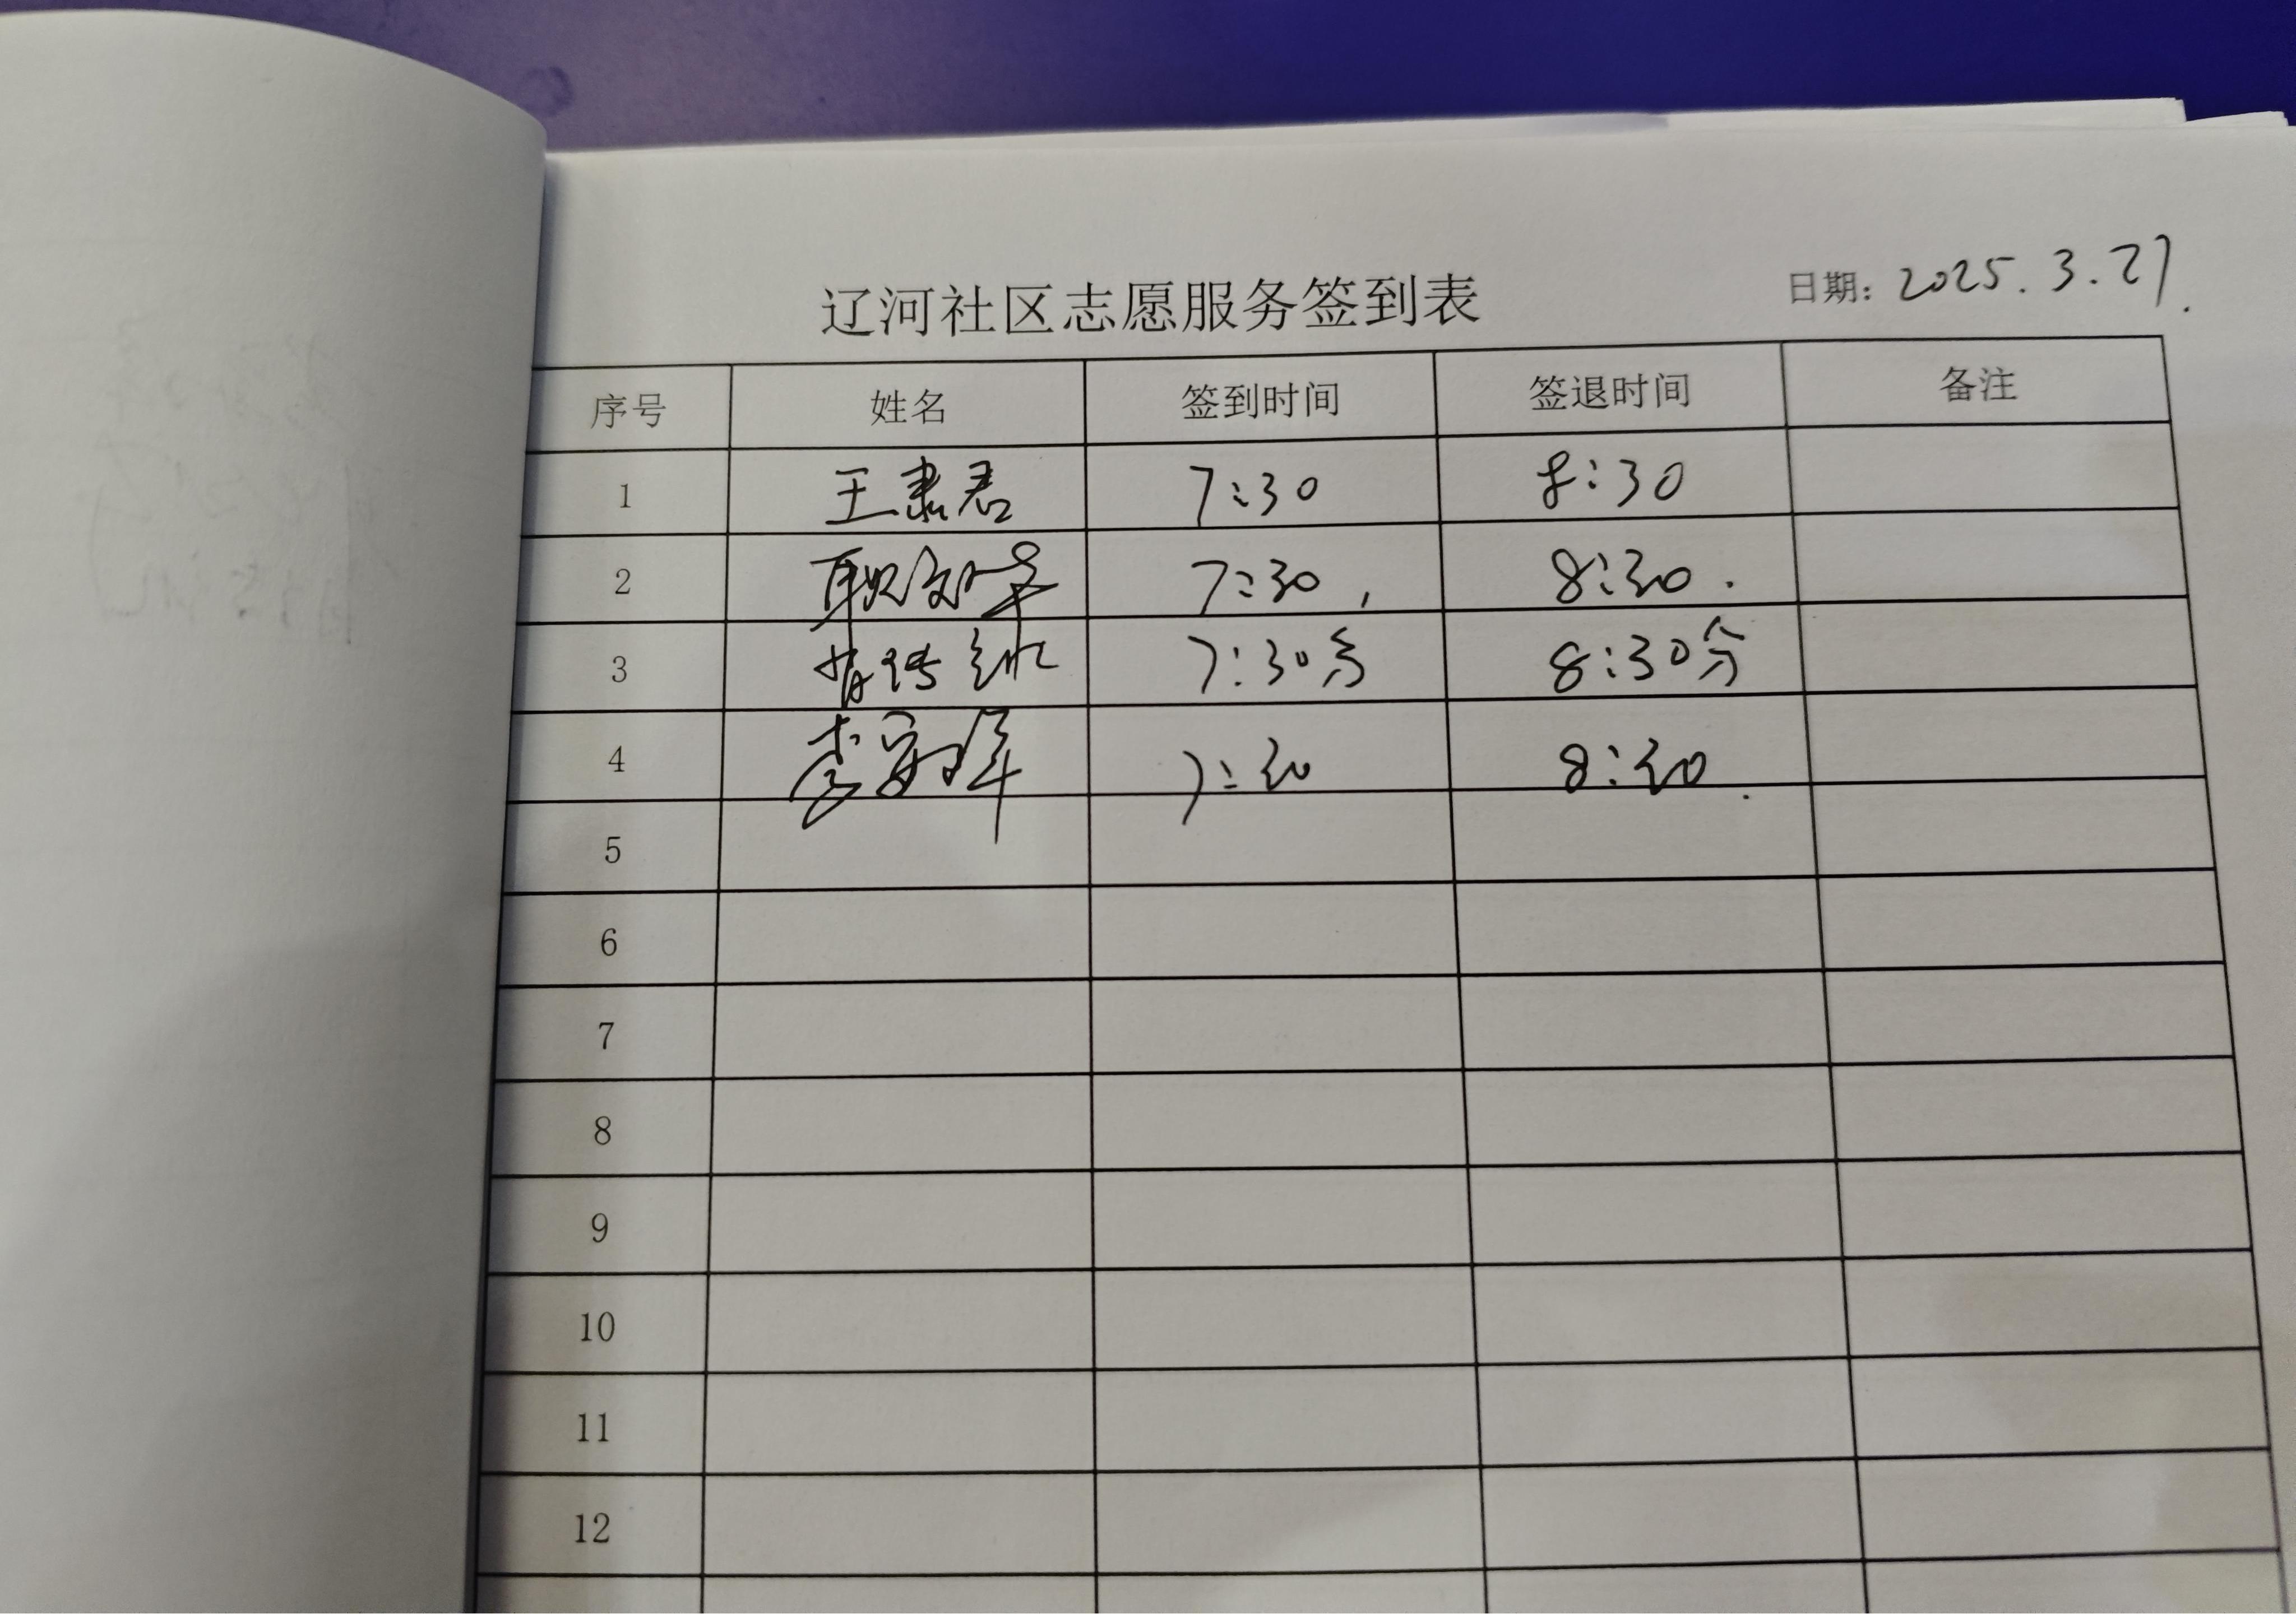 辽河社区志愿服务签到表
日期: 2025.3.27.
序号 姓名 签到时间 签退时间 备注
1 王肃君 7:30 8:30
2 7:30, 8:30.
3 7:30分 8:30分
4 李 7:30 8:30.
5
6
7
8
9
10
11
12